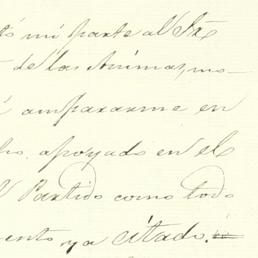 mi parte al Sr
de las Animas, mo-
ampararme en
apoyado en el
Partido como todo
ento ya citado.